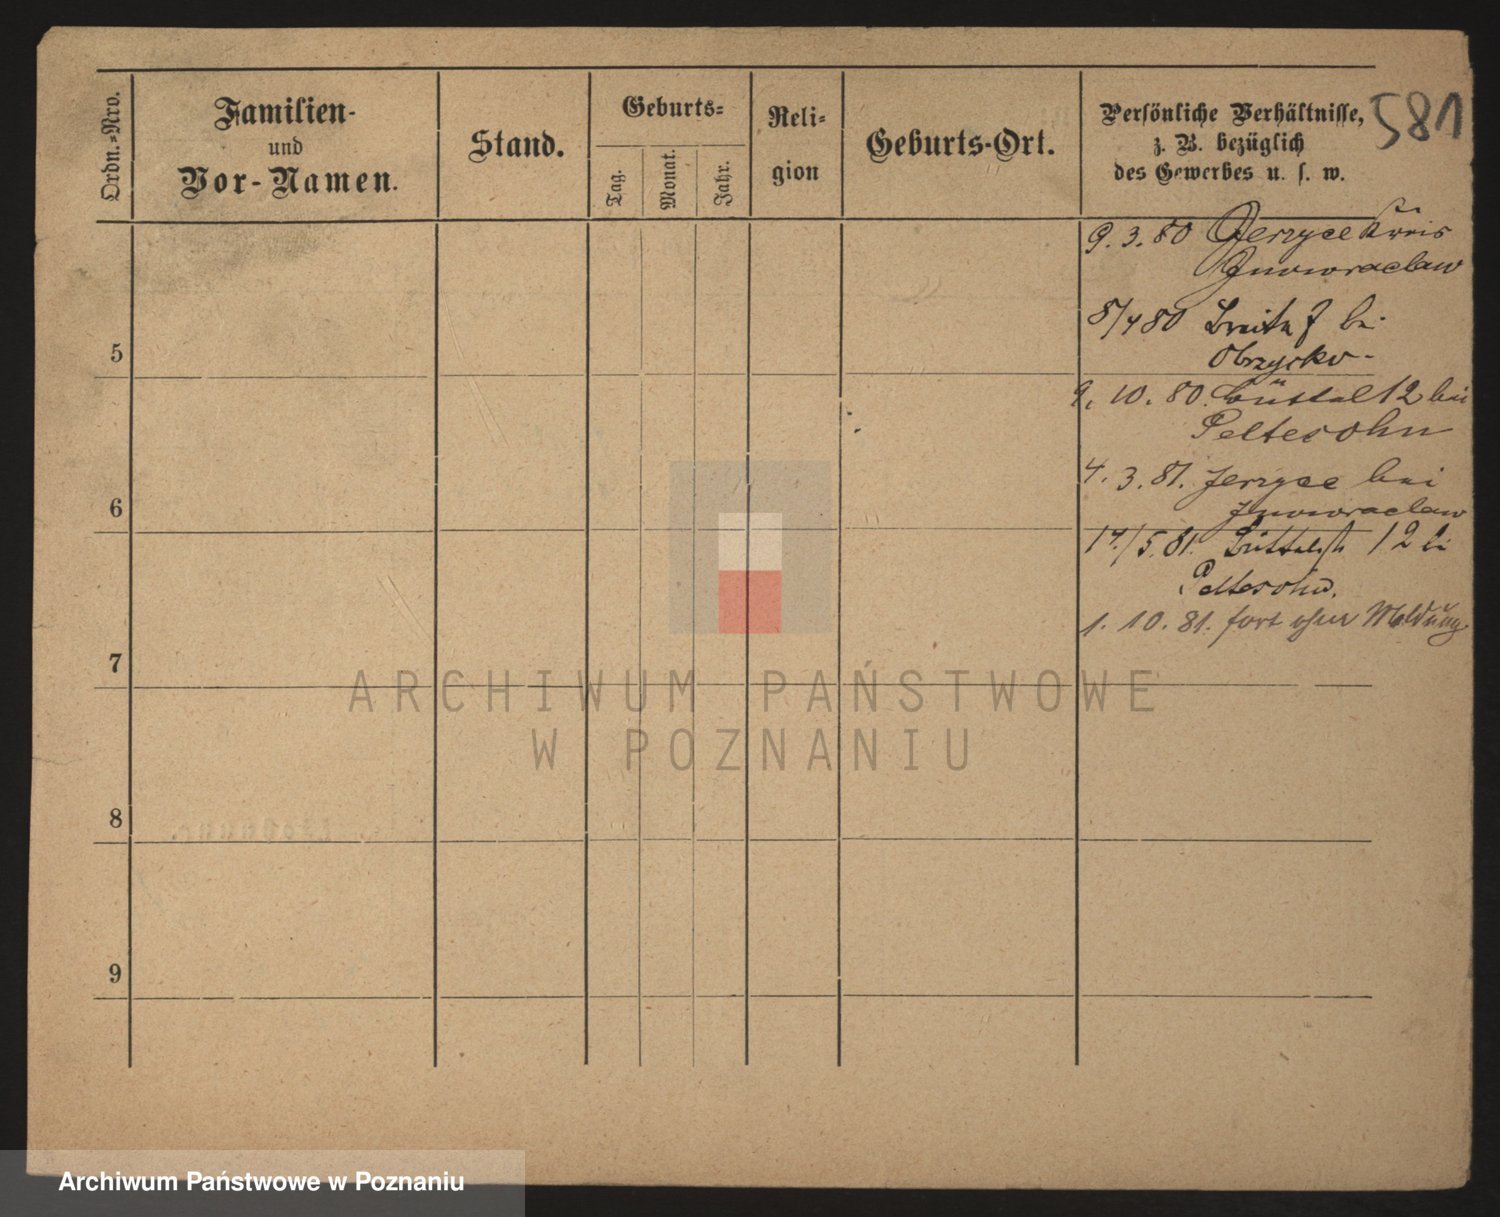 581
Ordn.-Nro.
Familien-
und
Vor-Namen.
Stand.
Geburts-
Tag.
Monat.
Jahr.
Reli-
gion
Geburts-Ort.
Persönliche Verhältnisse,
z. B. bezüglich
des Gewerbes u. s. w.
9. 3. 80 Jerzyce Kreis
Inowraclaw
8/4 80 Breite 7 bei
Obrzycko -
9. 10. 80. Büttel 12 bei
Peltesohn
4. 3. 81. Jerzyce bei
Inowraclaw
17./5. 81. Büttelst 12 bei
Peltesohn.
1. 10. 81. fort ohne Meldung
5
6
7
8
9
ARCHIWUM PAŃSTWOWE
W POZNANIU
Archiwum Państwowe w Poznaniu